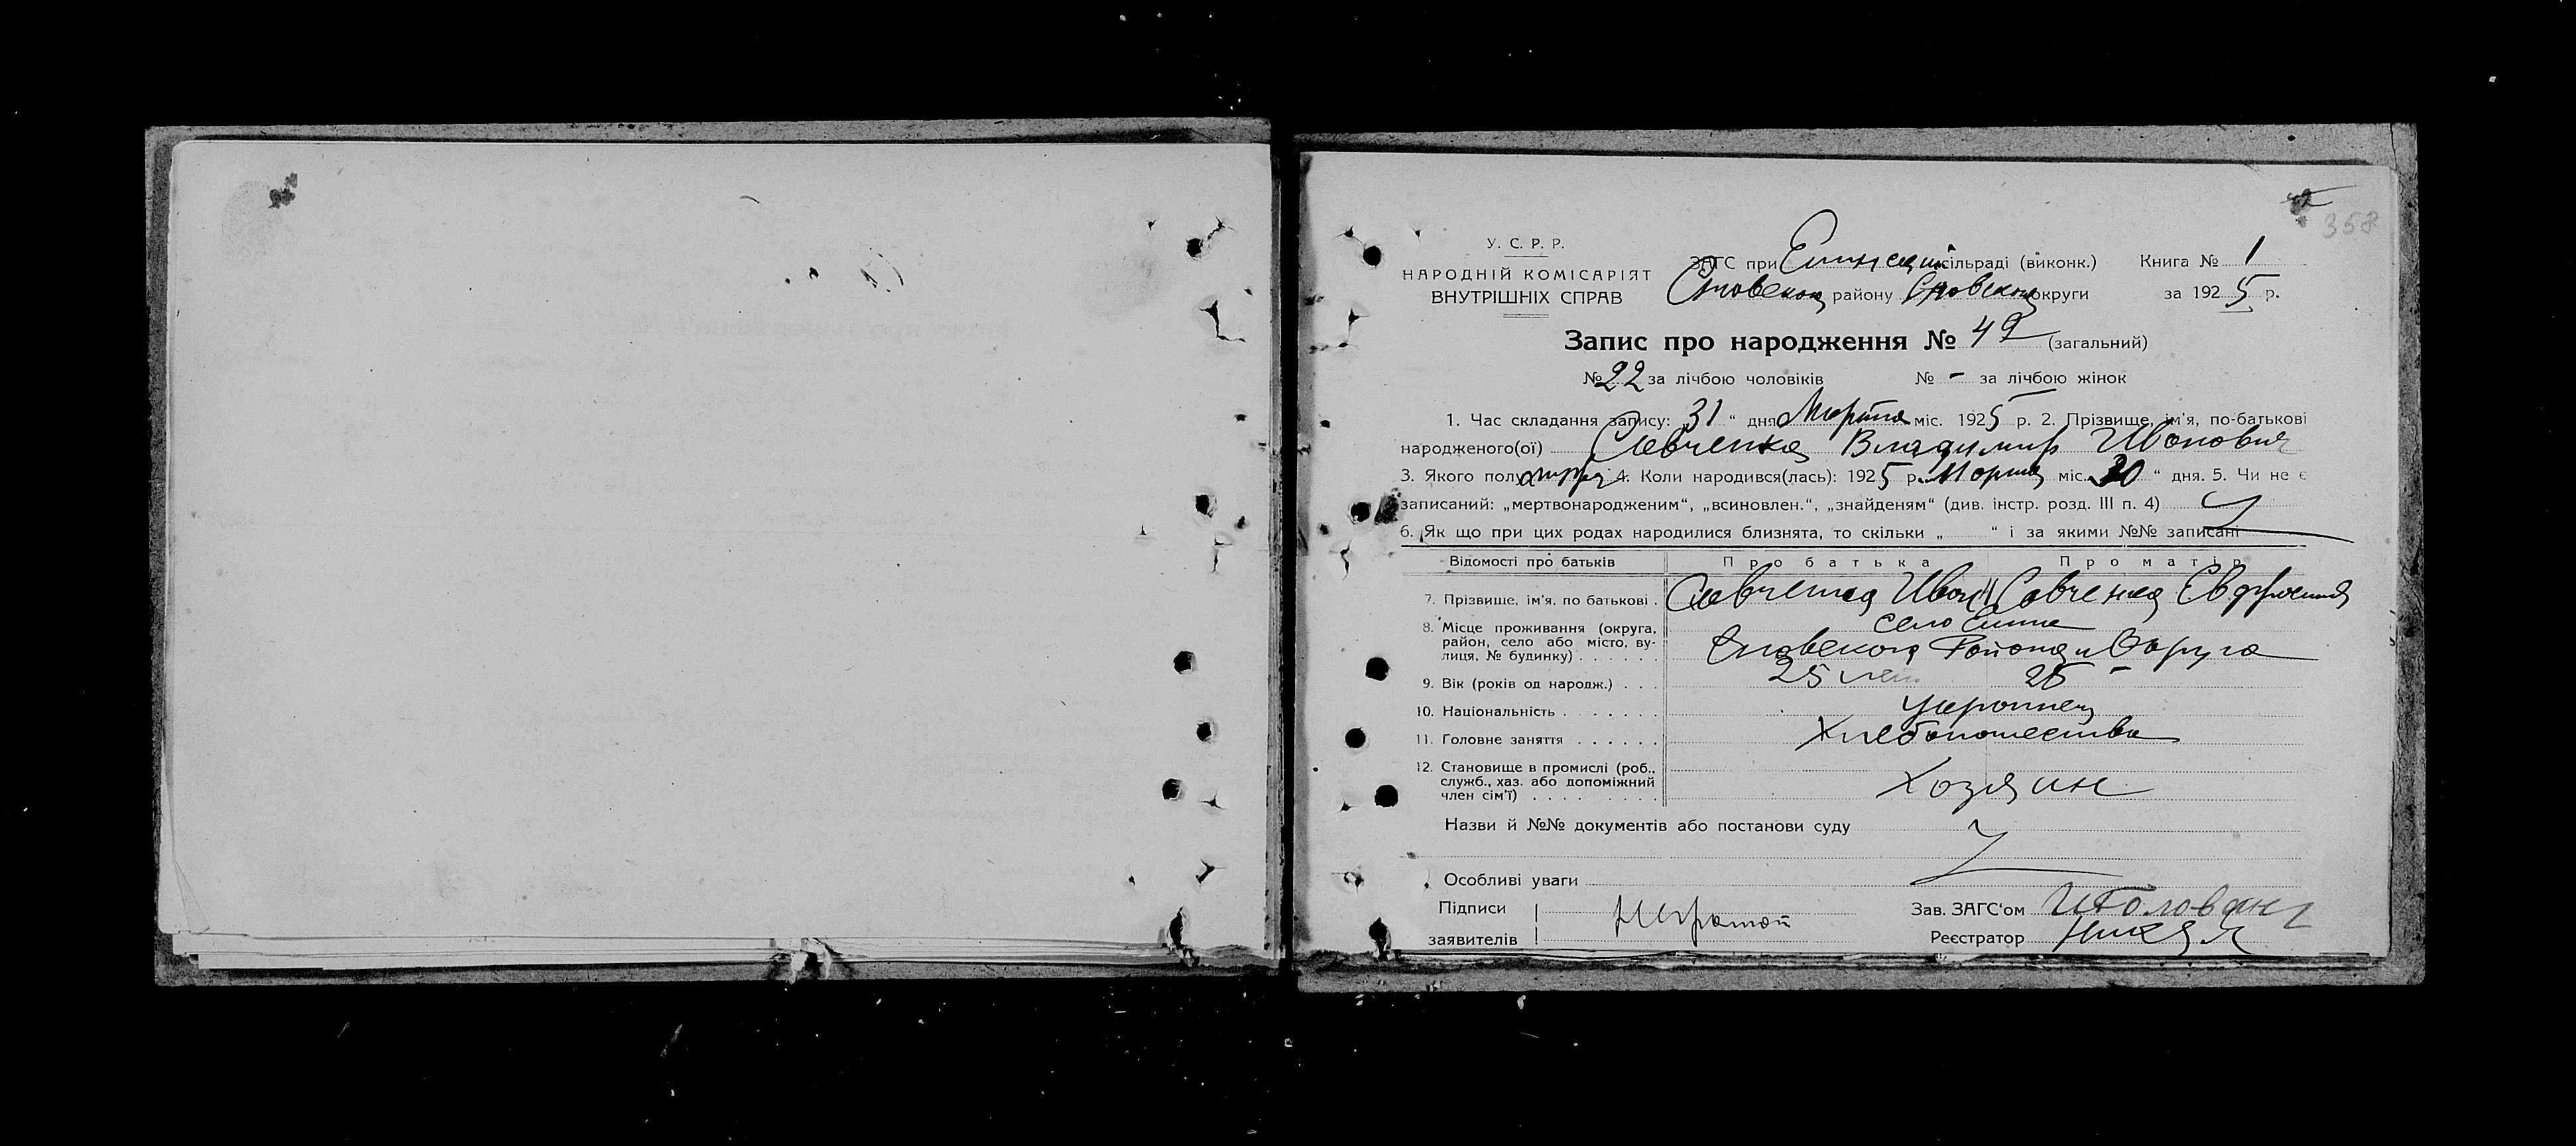 358
У. С. Р. Р.
НАРОДНІЙ КОМІСАРІЯТ
ВНУТРІШНІХ СПРАВ
ЗАГС при сільраді (виконк.) Книга № 1
Сновского району Сновского округи за 1925 р.
Запис про народження № 42 (загальний)
№ 22 за лічбою чоловіків № - за лічбою жінок
1. Час складання запису: 31 “ дня Марта міс. 1925 р. 2. Прізвище, ім'я, по-батькові
народженого(ої) Савченко Владимир Иванович
3. Якого полу 4. Коли народився(лась): 1925 р. Марта міс. 30 “ дня. 5. Чи не є
записаний: „мертвонародженим“, „всиновлен.“, „знайденям“ (див. інстр. розд. III п. 4)
6. Як що при цих родах народилися близнята, то скільки „ “ і за якими №№ записані
Відомості про батьків Про батька Про матір
7. Прізвище, ім'я, по батькові . Савченко Иван Савченко Евфросиния
8. Місце проживання (округа, район, село або місто, вулиця, № будинку) . . . . . . село
Сновского Района и Округа
9. Вік (років од народж.) . . . 25 лет 25 -
10. Національність . . . . . . . украинец
11. Головне заняття . . . . . . Хлебопашество
12. Становище в промислі (роб., служб., хаз. або допоміжний член сім'ї) . . . . . . . . . Хозяин
Назви й №№ документів або постанови суду
Особливі уваги
Підписи
заявителів
Неграмот
Зав. ЗАГС'ом
Реєстратор